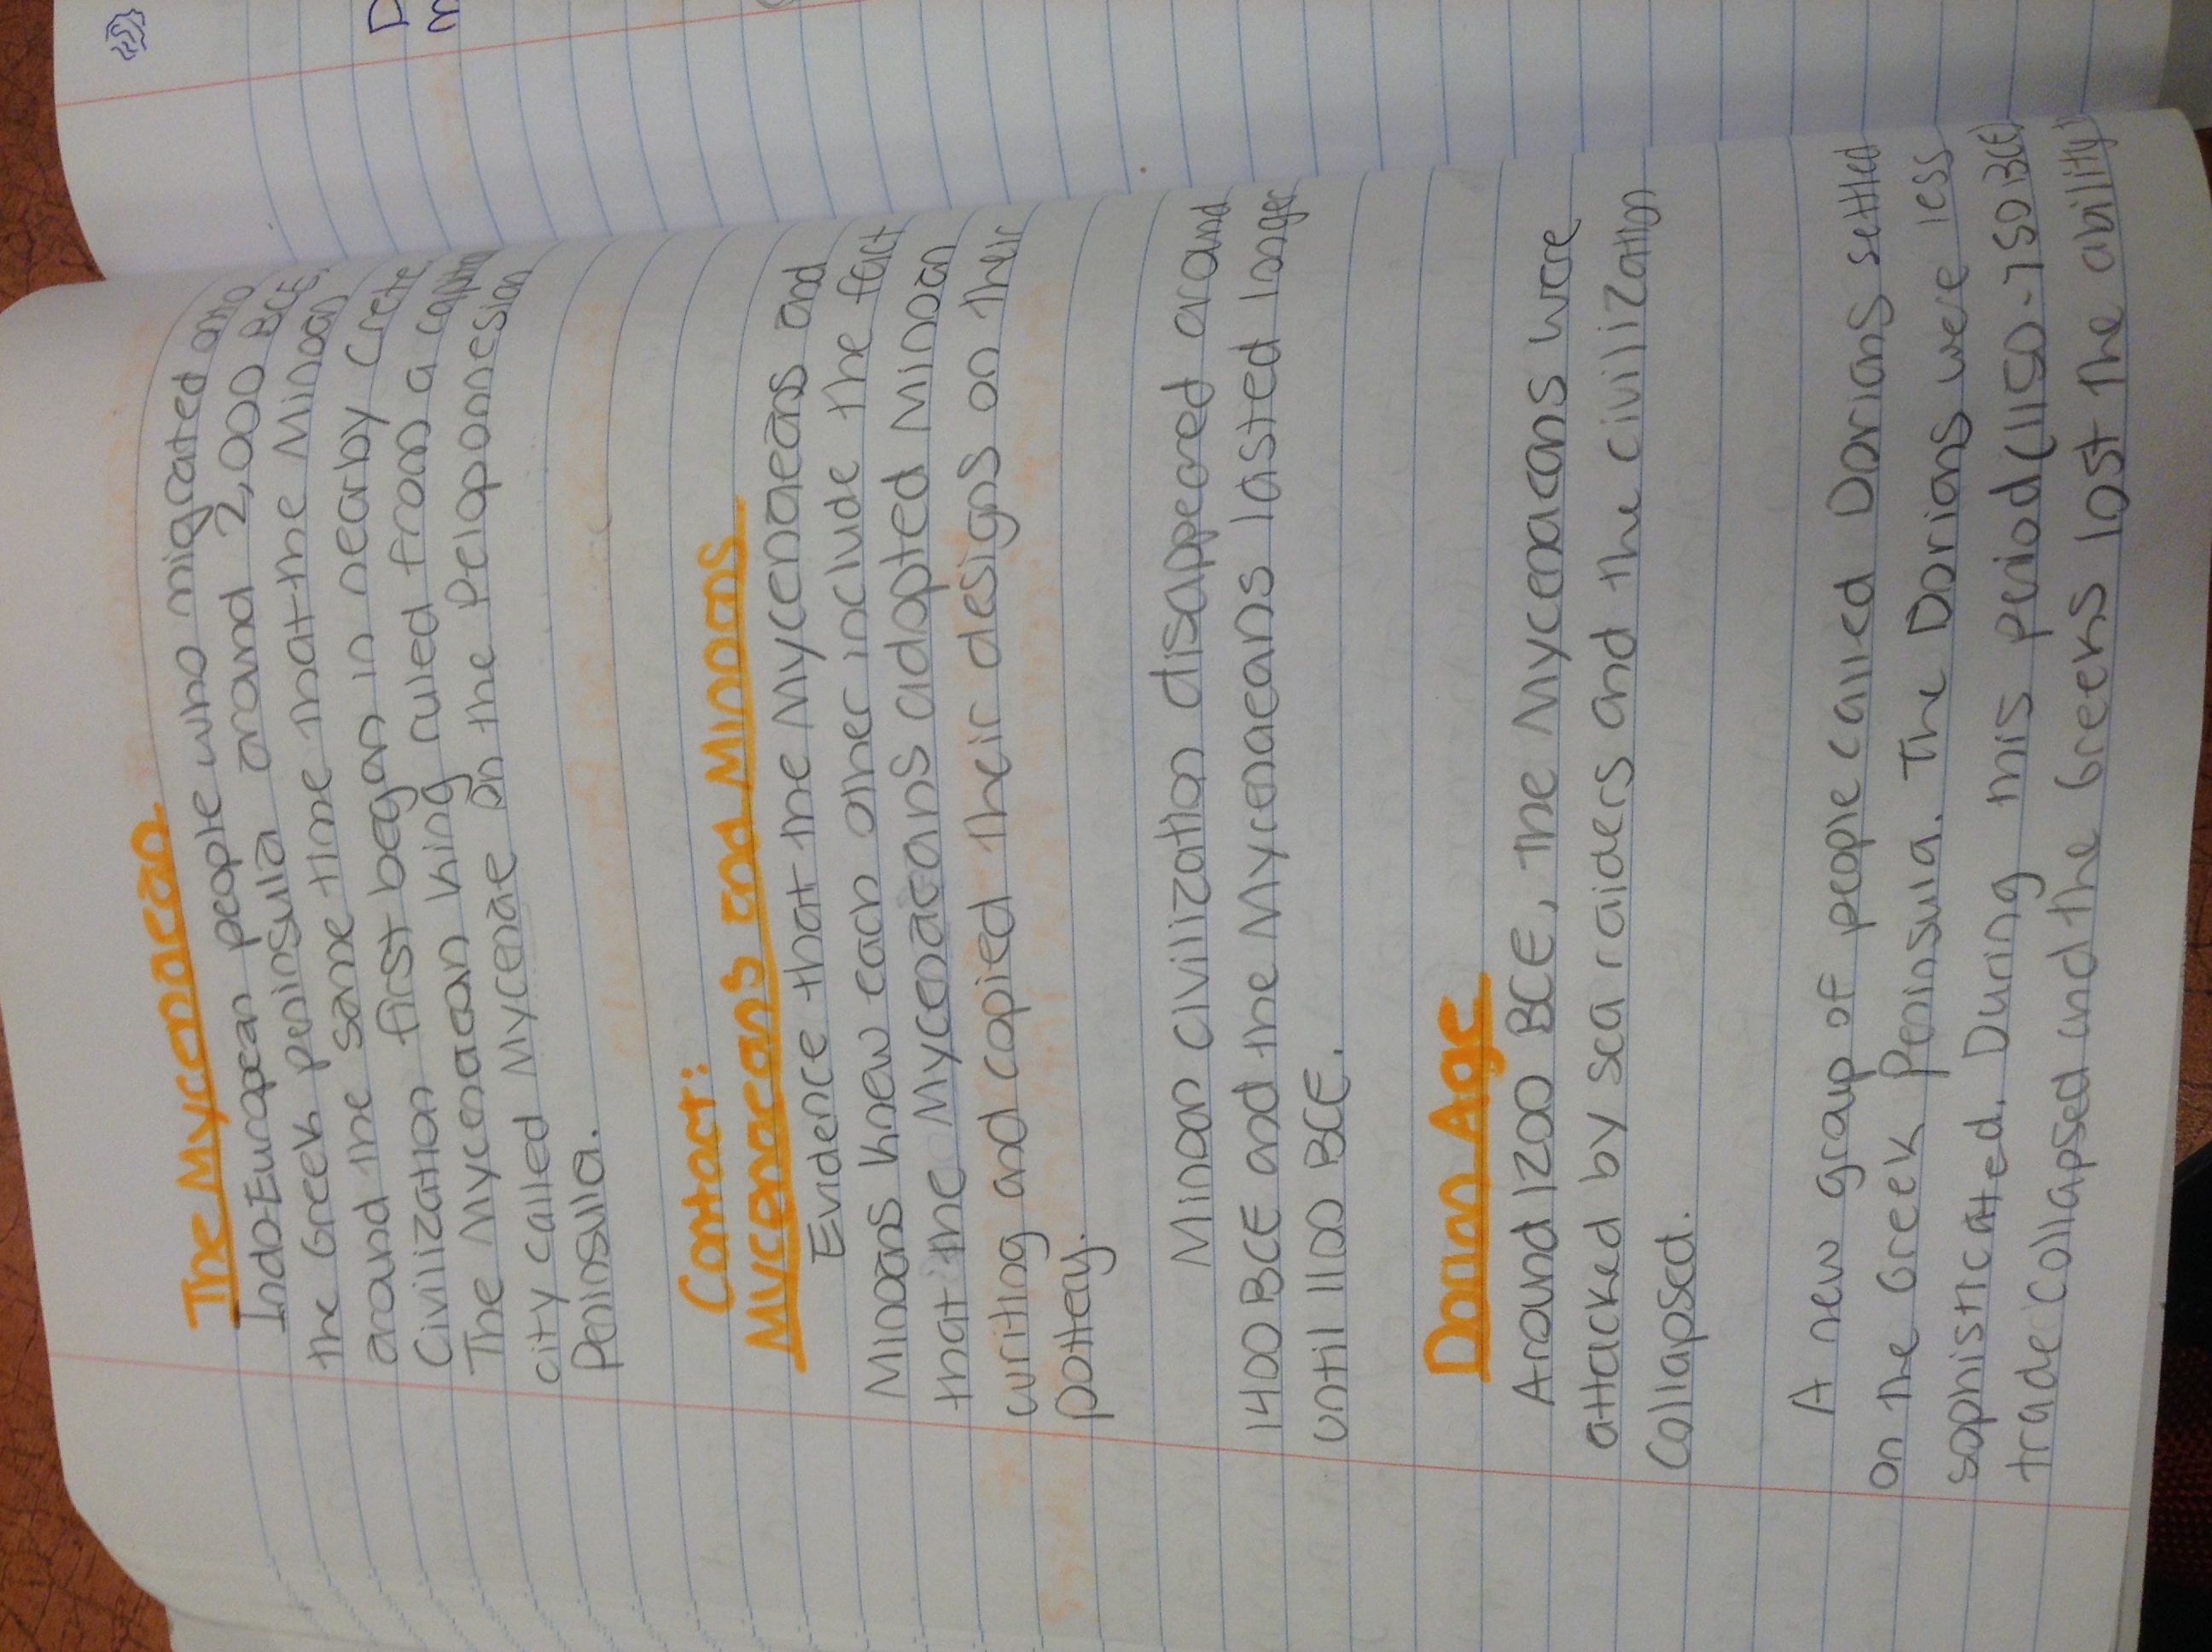 The Mycenaean
Indo-European people who migrated onto
the Greek peninsula around 2,000 BCE,
around the same time that the Minoan
Civilization first began in nearby Crete.
The Mycenaean King ruled from a capital
city called Mycenae on the Peloponnesian
Peninsula.
Contact:
Mycenaeans and Minoans
Evidence that the Mycenaeans and
Minoans knew each other include the fact
that the Mycenaeans adopted Minoan
writing and copied their designs on their
pottery.
Minoan civilization disappeared around
1400 BCE and the Mycenaeans lasted longer
until 1100 BCE.
Dorian Age
Around 1200 BCE, the Mycenaeans were
attacked by sea raiders and the civilization
collapsed.
A new group of people called Dorians settled
on the Greek Peninsula. The Dorians were less
sophisticated. During this period (1150-750 BCE)
trade collapsed and the Greeks lost the ability